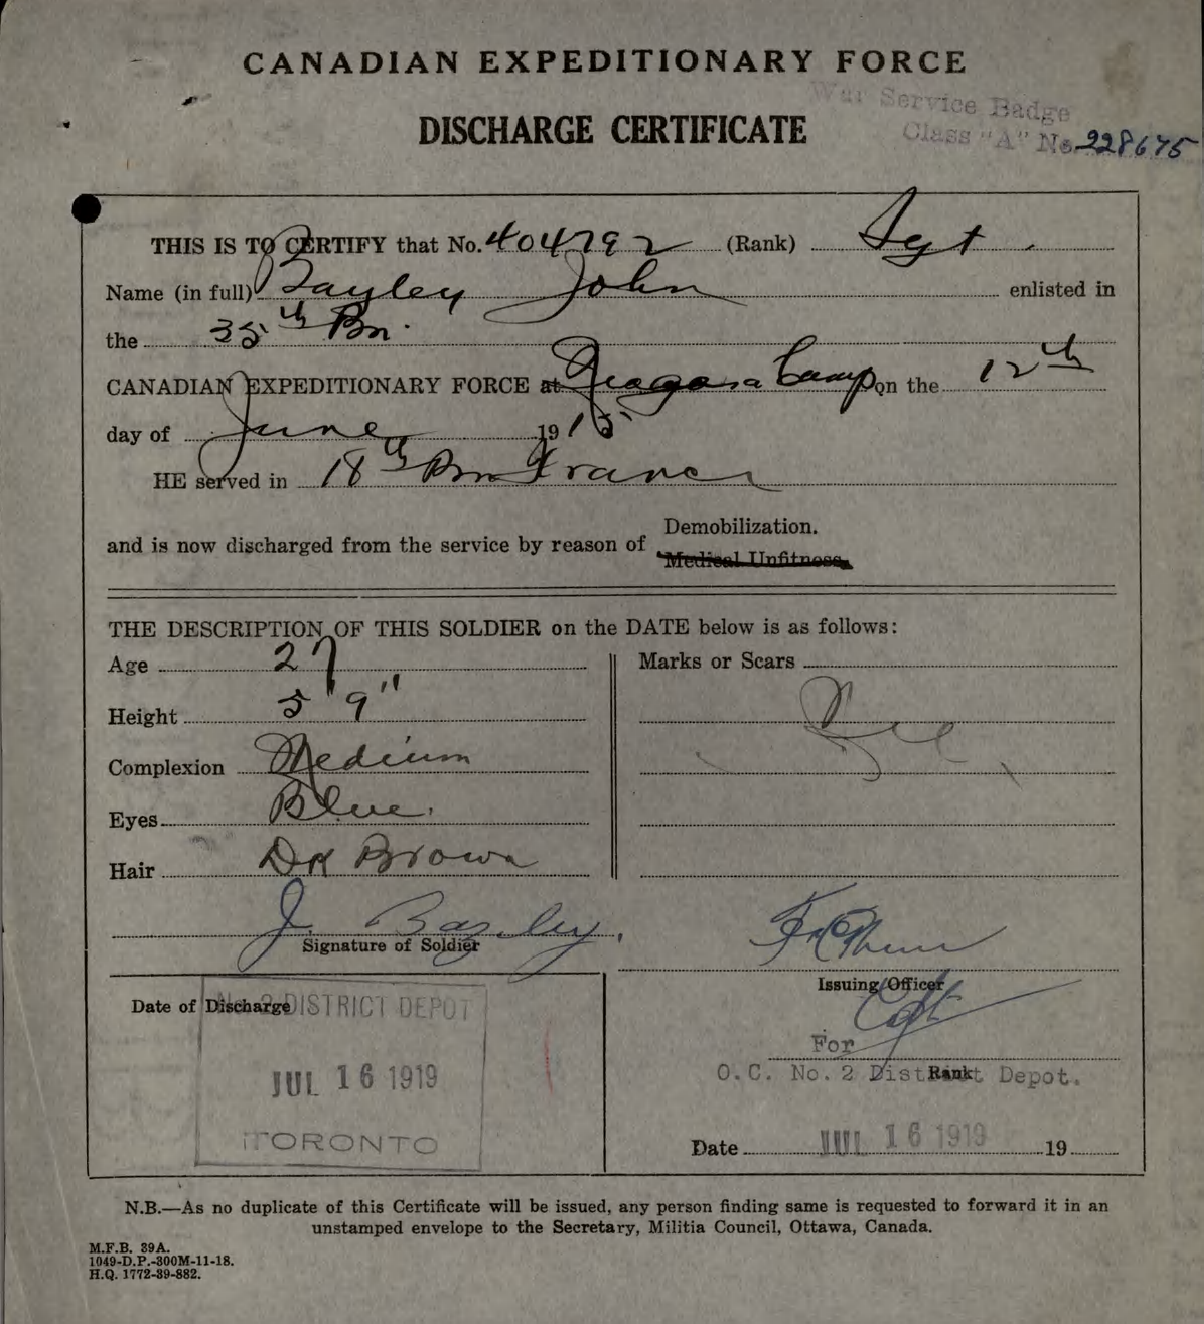 CANADIAN EXPEDITIONARY FORCE
DISCHARGE CERTIFICATE
War Service Badge
Class "A" No 228675
THIS IS TO CERTIFY that No. 404792 (Rank) Sgt.
Name (in full) Bayley John enlisted in
the 35th Bn.
CANADIAN EXPEDITIONARY FORCE at Niagara Camp on the 12th
day of June 1915
HE served in 18th Bn France
and is now discharged from the service by reason of Demobilization.
Medical Unfitness.
THE DESCRIPTION OF THIS SOLDIER on the DATE below is as follows:
Age 27
Height 5' 9"
Complexion Medium
Eyes Blue.
Hair Dk Brown
Marks or Scars
Nil
J. Bayley.
Signature of Soldier
Issuing Officer
Capt
For
O.C. No. 2 District Depot.
Rank
Date JUL 16 1919 19
Date of Discharge
No. 2 DISTRICT DEPOT
JUL 16 1919
TORONTO
N.B.—As no duplicate of this Certificate will be issued, any person finding same is requested to forward it in an
unstamped envelope to the Secretary, Militia Council, Ottawa, Canada.
M.F.B. 39A.
1049-D.P.-300M-11-18.
H.Q. 1772-39-882.